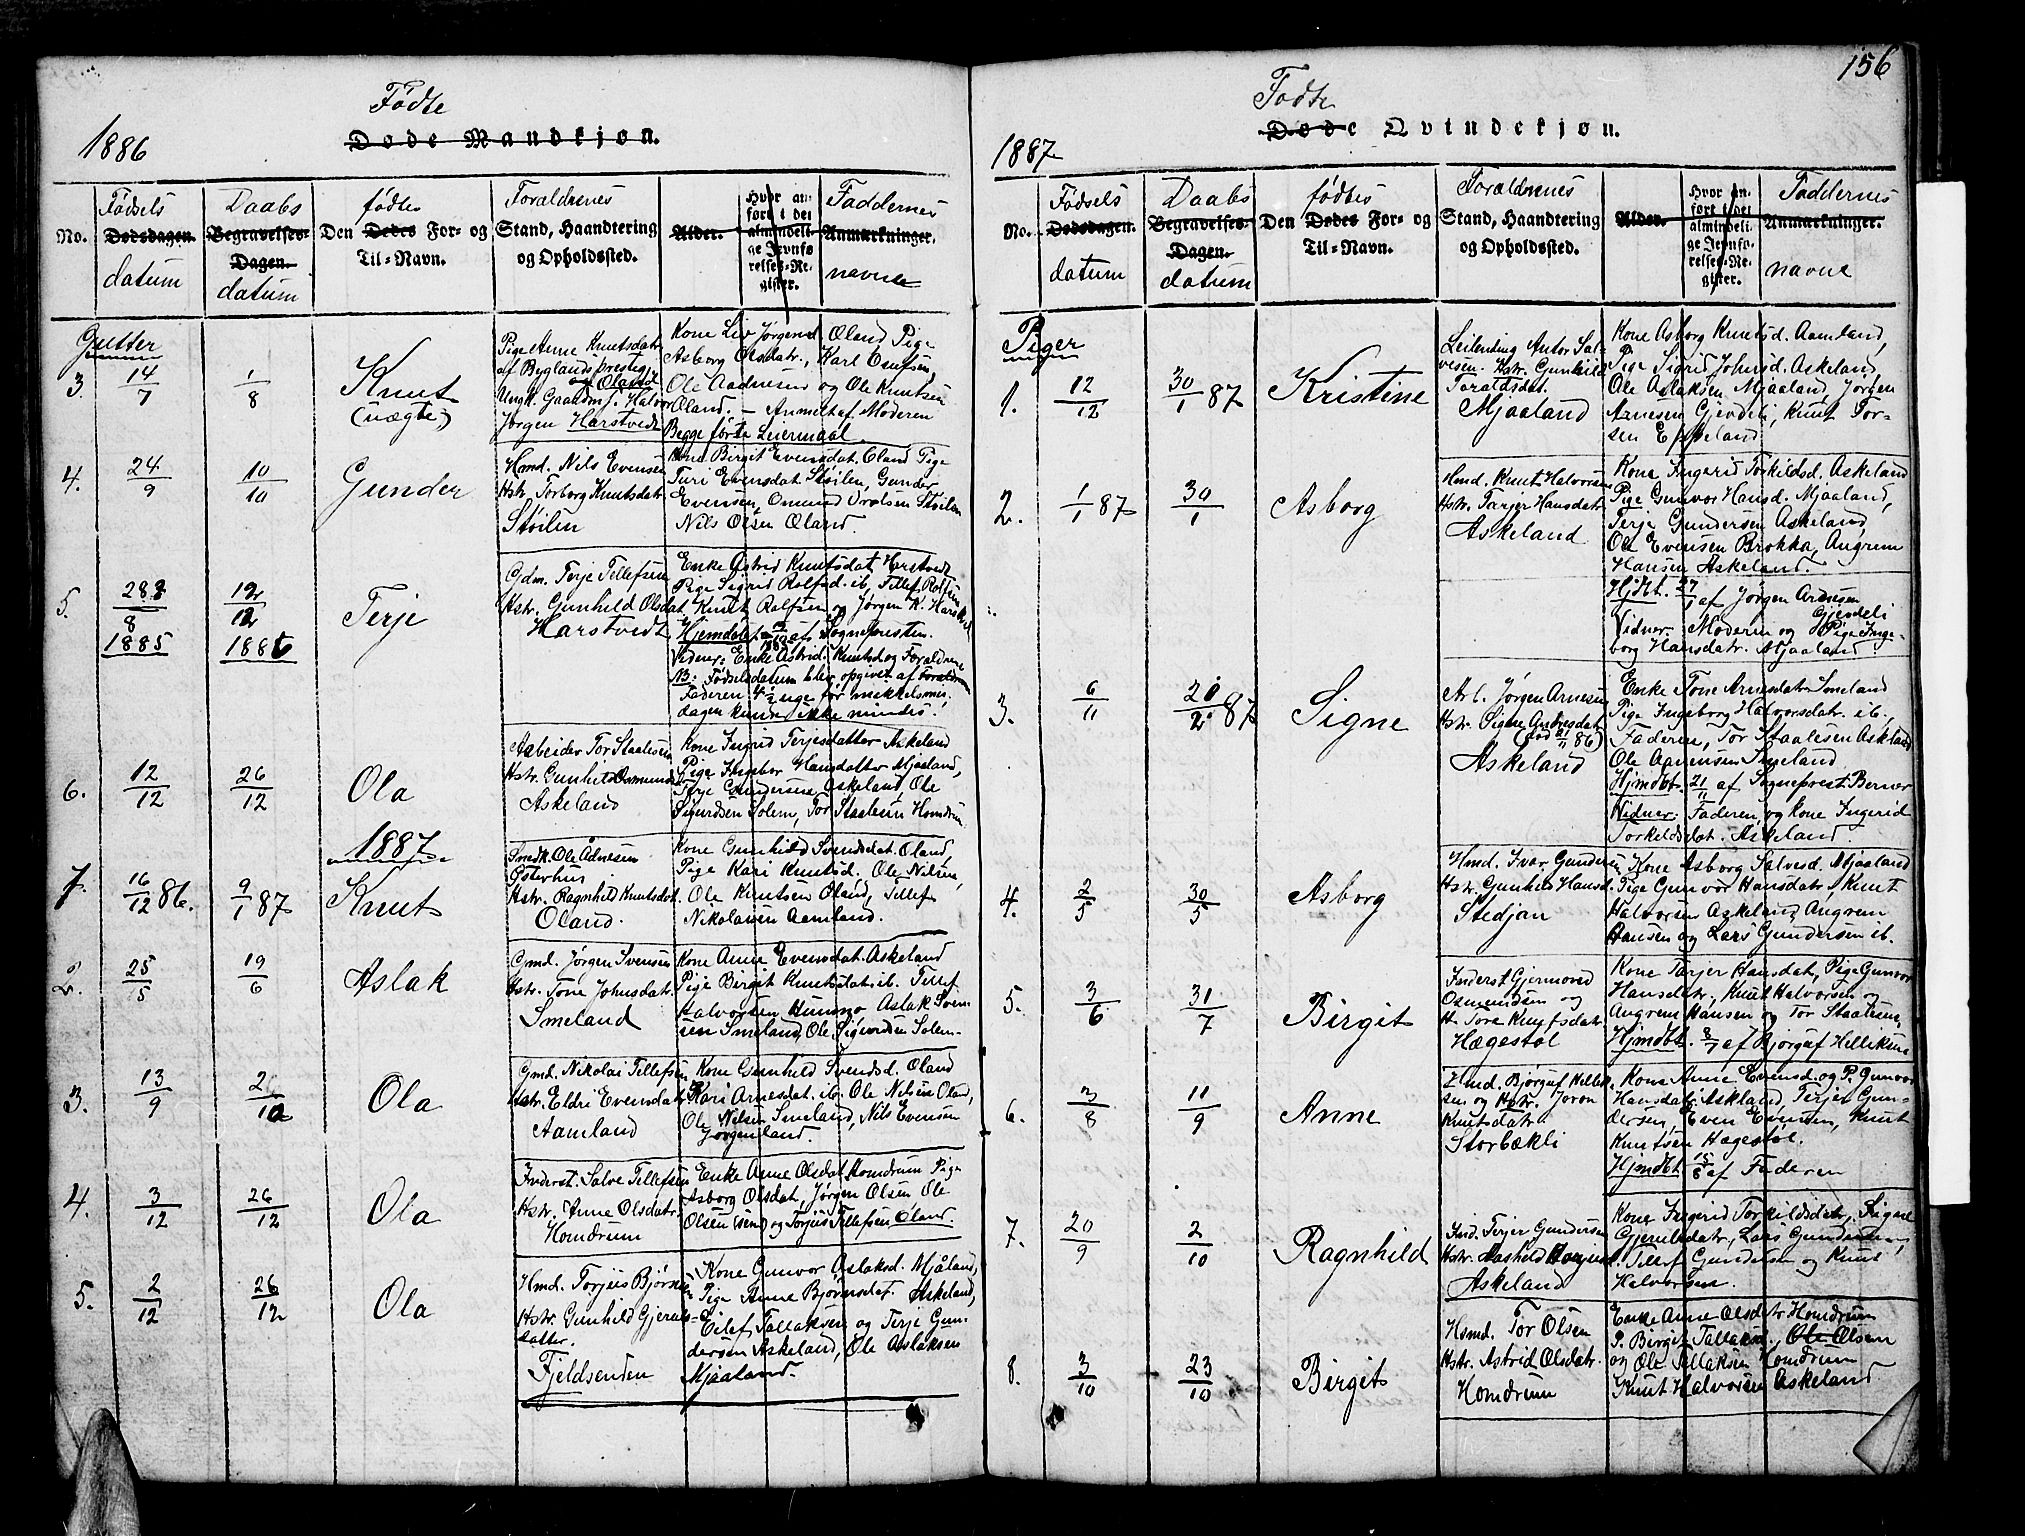 156
Fødte
1886
Døde Mandkjøn.
No.
Fødsels
Dødsdagen.
datum
Daabs
Begravelses-
Dagen.
datum
fødtes
Den Dødes For- og
Til-Navn.
Forældrenes
Stand, Haandtering
og Opholdssted.
Alder.
Hvor an-
ført i det
almindeli-
ge Jevnfø-
relses-Re-
gister.
Faddernes
Anmærkninger.
navne
Gutter
3. 14/7 1/8 Knut
(uægte)
Pige Anne Knutsdatr
af Byglands prestegj.
og Olavsd.
Ungk. Gaardm. j. Halvor
Jørgen Harstvedt
Kone Liv Jørgensd. Øland Pige
Asborg Olsdatr., Karl Osufsen,
Ole Aadnesen og Ole Knutsen
Øland. – Anmeldt af Moderen
Begge første Leiermaal.
4. 24/9 10/10 Gunder
Hmd. Nils Evensen
Hstr. Torborg Knutsdatr
Støilen
Kone Birgit Evensdat. Øland Pige
Turi Evensdat Støilen, Gunder
Evensen, Osmund Orølsen Støilen
Nils Olsen Øland.
5. 28/8 1885 12/12 1886 Terje
Gdm. Terje Tellefsen
Hstr. Gunhild Olsdat
Harstvedt
Enke Astrid Knutsdat Harstvedt
Pige Sigrid Rolfsd. ib. Tellef Rolfsen
Knut Rolfsen og Jørgen K. Harstvedt
Hjemdøbt af Sognepresten.
Vidner: Enke Astrid Knutsd og Forældrene
NB: Fødselsdatum blev opgivet af Forældrene
Faderen 4½ uge før mikkelsmes.
dagen kunde ikke mindes!
6. 12/12 26/12 Ola
Arbeider Tor Staalesen
Hstr. Gunhild Osmunds
Askeland
Kone Ingrid Terjesdatter Askeland
Pige Ingebor Hansdatter Mjaaland,
Terje Gundersen Askeland, Ole
Sigurdsen Solem, Tor Staalesen Homdrum
1887
7. 16/12 86. 9/1 87 Knut
Smdk. Ole Adnesen
Østerhus
Hstr. Ragnhild Knutsdat.
Øland.
Kone Gunhild Svensdat. Øland
Pige Kari Knutsd. Ole Nilsen,
Ole Knutsen Øland, Tellef
Nikolaisen Aamland.
2. 25/5 19/6 Aslak
Gmd. Jørgen Svensen
Hstr. Tone Johnsdatr
Smeland
Kone Anne Evensdat. Askeland
Pige Birgit Knutsdat. ib. Tellef
Halvorsen Hunsmo Aslak Sven-
sen Smeland, Ole Sigurdsen Solem-
3. 13/9 2/10 Ola
Gmd. Nikolai Tellefsen
Hstr. Eldri Evensdatr
Aamland
Kone Gunhild Svendsd. Øland
Kari Arnesdat. ib. Ole Nilsen Øland,
Ole Nilsen Smeland, Nils Evensen
Jorgenland.
4. 3/12 26/12 Ola
Inderst. Salve Tellefsen
Hstr. Anne Olsdatr.
Homdrum
Enke Anne Olsdat Homdrum Pige
Asborg Olsdat, Jørgen Olsen Ole
Olsen (sen) og Torjus Tellefsen Øland.
5. 2/12 26/12 Ola
Hmd. Torjus Bjørnsen
Hstr. Gunhild Gjeruls-
datter.
Fjeldsenden
Kone Gunvor Aslaksd. Mjåland,
Pige Anne Bjørnsdat. Askeland,
Eilef Tallaksen og Terje Gun-
dersen Askeland, Ole Aslaksen
Mjaaland.
Fødte
1887
Døde Qvindekjøn.
No.
Fødsels
Dødsdagen.
datum
Daabs
Begravelses-
Dagen.
datum
fødtes
Den Dødes For- og
Til-Navn.
Forældrenes
Stand, Haandtering
og Opholdssted.
Alder.
Hvor an-
ført i det
almindeli-
ge Jevnfø-
relses-Re-
gister.
Faddernes
Anmærkninger.
navne
Piger
1. 12/12 30/1 87 Kristine
Leilending Antor Sal-
vesen. Hstr. Gunhild
Taraldsdat.
Mjaaland
Kone Asborg Knutsd. Aamland,
Pige Sigrid Johnsd. Askeland,
Ole Aslaksen Mjaaland, Jørgen
Arnesen Gjevdeli, Knut Tor-
sen Eppeland
2. 1/1 87 30/1 Asborg
Hmd. Knut Halvorsen
Hstr. Tarjer Hansdatr.
Askeland
Kone Ingerid Torkildsd. Askeland
Pige Gunvor Hansd. Mjaaland,
Terje Gundersen Askeland,
Ole Evensen Brokka, Angrem
Hansen Askeland.
Hjdt. 27/1 af Jørgen Arnesen
Gjevdeli
Vidner: Moderen og Pige Inge-
borg Hansdatr. Mjaaland.
3. 6/11 20/2 87 Signe
Arl. Jørgen Arnesen
Hstr. Signe Andresdat
(død 21/11 86)
Askeland
Enke Tone Arnesdatr Smeland
Pige Ingeborg Halvorsdatr. ib.
Faderen, Tor Staalesen Askeland
Ole Aanensen Smeland
Hjmdbt. 21/11 af Sogneprest Berner
Vidner: Faderen, og Kone Ingerid
Torkeldsdat. Askeland.
4. 2/5 30/5 Asborg
Hmd. Ivar Gundersen
Hstr. Gunhild Hansd.
Stedjan
Kone Asborg Salvesd. Mjaaland
Pige Gunvor Hansdatr, Knut
Halvorsen Askeland, Angrem
Hansen og Lars Gundersen ib.
5. 3/6 31/7 Birgit
Inderst Gjermond
Osmundsen og
H. Tore Knutsdatr
Hægestøl
Kone Tarjer Hansdat, Pige Gunvor
Hansdatr., Knut Halvorsen og
Angrem Hansen og Tor Staalesen,
Hjmdbt. 8/7 af Bjørguf Hilliksen
6. 3/8 11/9 Anne
Hmd. Bjørguf Hillik-
sen og Hstr. Joron
Knutsdatr.
Storbækli
Kone Anne Evensd. og P. Gunvor
Hansdatr. Askland, Terjer Gun-
dersen, Even Evensen, Knut
Knutsen Hægestøl.
Hjmdbt 15/8 af Faderen
7. 20/9 2/10 Ragnhild
Ind. Terjer Gundersen
Hstr. Aashild
Askeland
Kone Ingerid Torkildsdatr, Signe
Gjerulsdatr, Lars Gundersen,
Tellef Gundersen og Knut
Halvorsen.
8. 3/10 23/10 Birgit
Hsmd. Tor Olsen
Hstr. Astrid Olsdatr.
Homdrum
Enke Anne Olsdatr Homdrum
P. Birgit Tallaksd., Ole Olsen
og Ole Tellaksen Homdrum
Knut Halvorsen Askeland